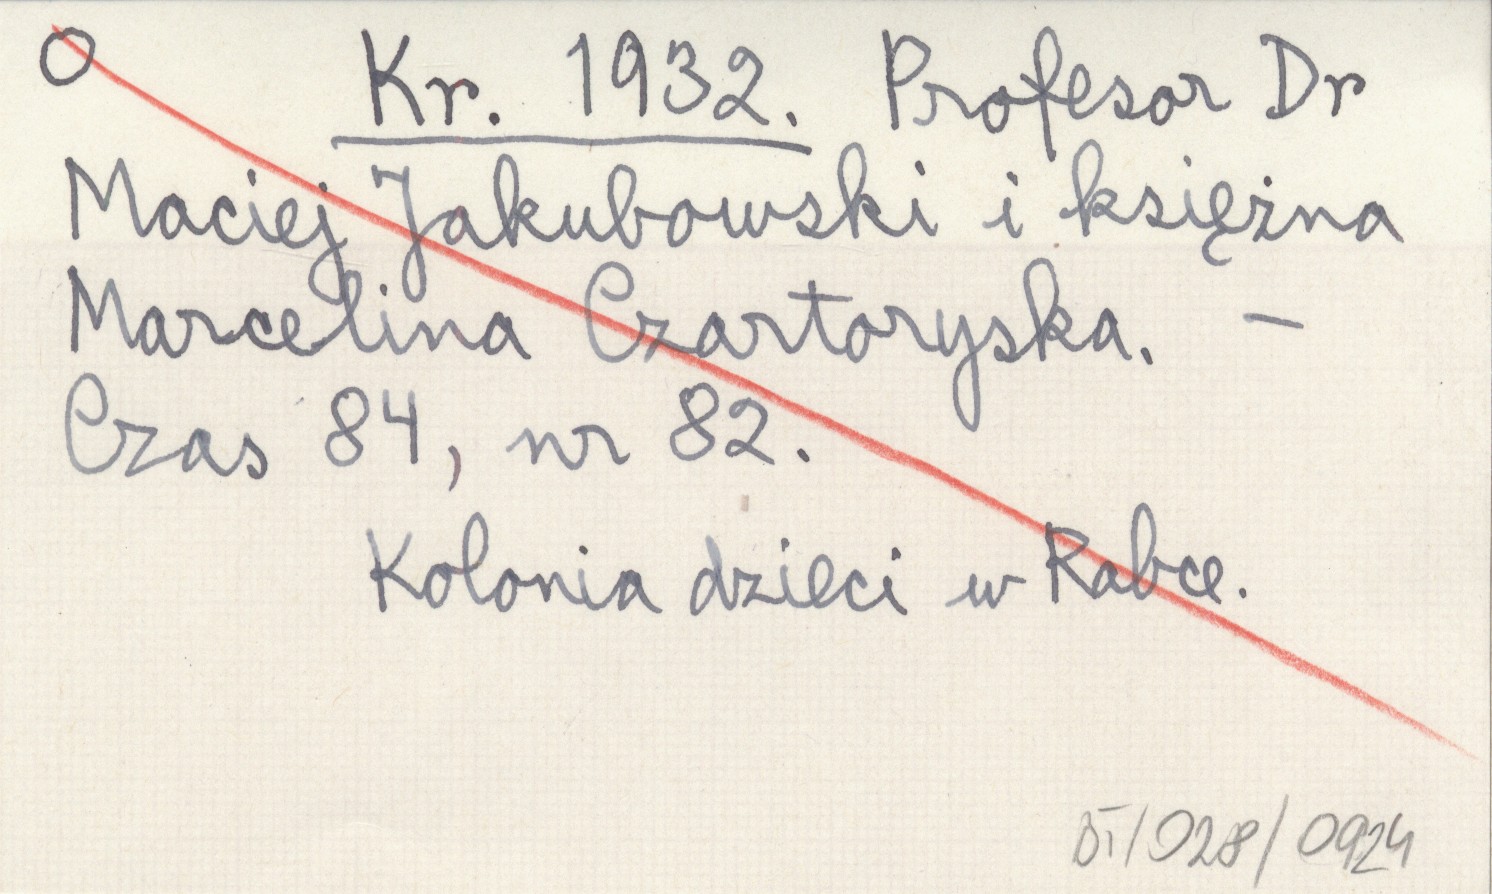 O Kr. 1932. Profesor Dr
Maciej Jakubowski i księżna
Marcelina Czartoryska. —
Czas 84, nr 82.
Kolonia dzieci w Rabce.
BT/028/0924